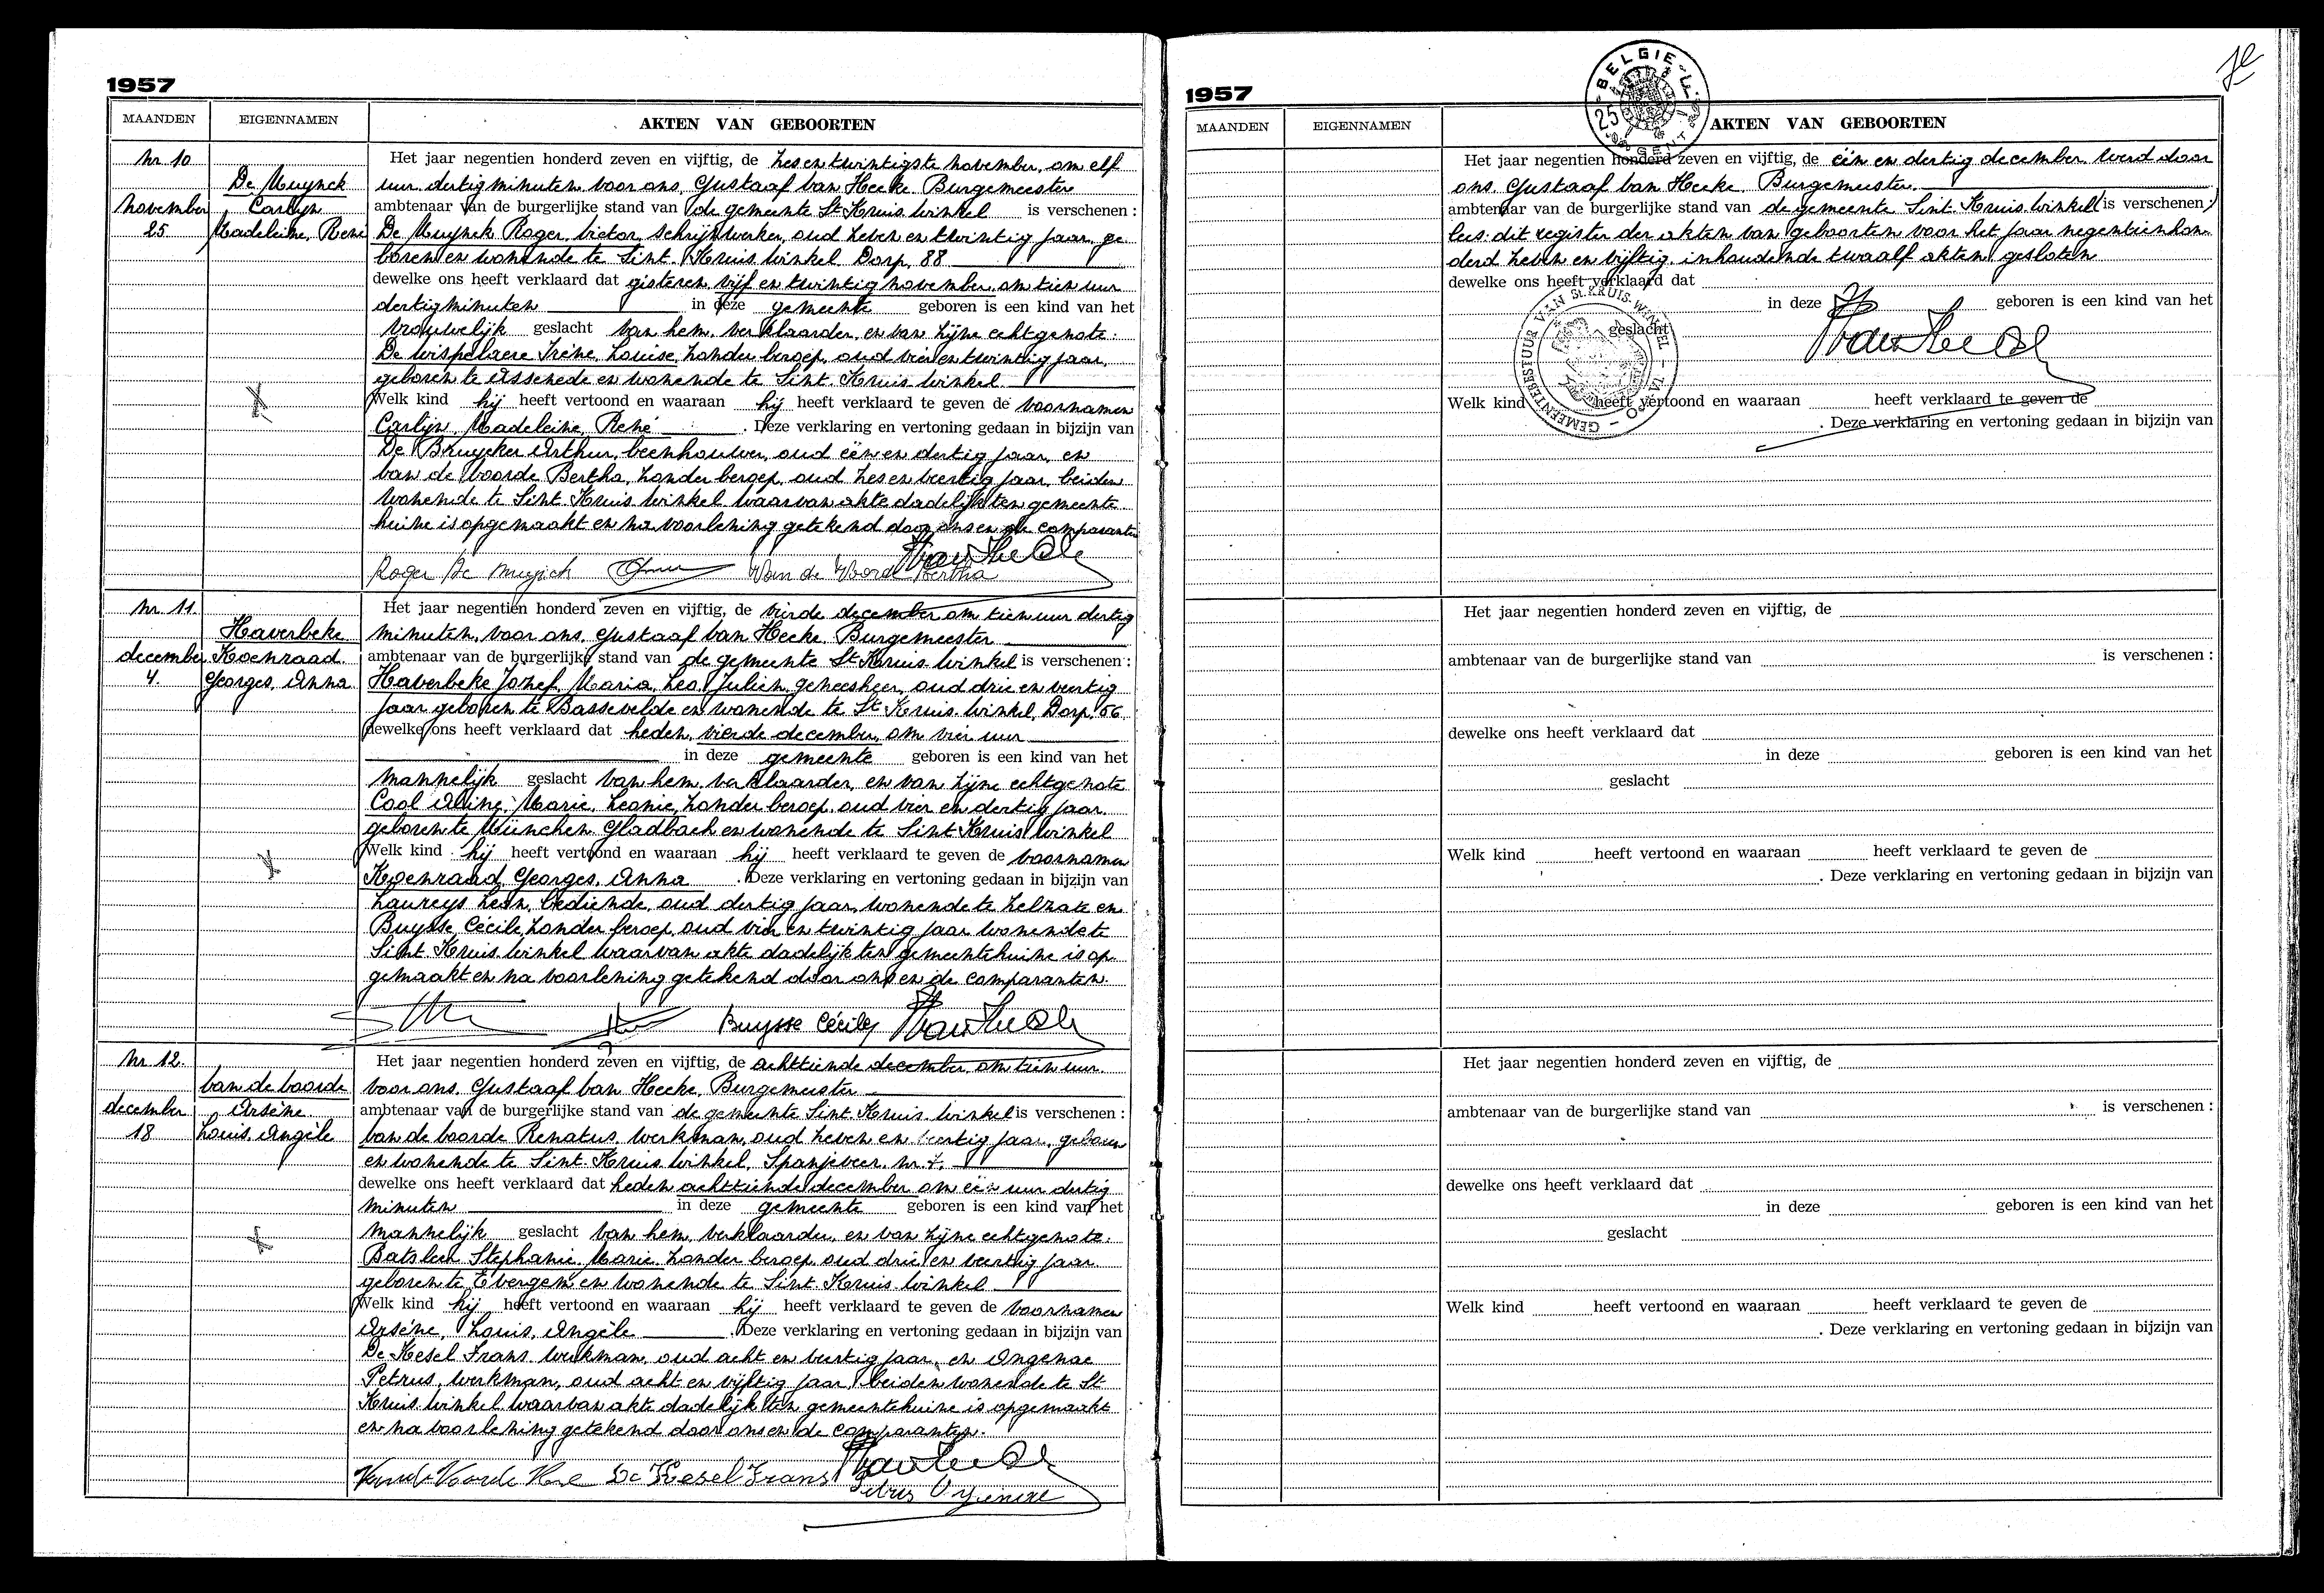 1957
MAANDEN EIGENNAMEN AKTEN VAN GEBOORTEN
Nr. 10
De Muynck
november Carlyn
25 Madeleine, René
Het jaar negentien honderd zeven en vijftig, de zesentwintigste november, om elf
uur dertig minuten voor ons, Gustaaf van Hecke Burgemeester
ambtenaar van de burgerlijke stand van de gemeente St Kruis Winkel is verschenen :
De Muynck Roger, Victor, schrijnwerker, oud zeven en twintig jaar, ge
boren en wonende te Sint. Kruis Winkel Dorp, 88
dewelke ons heeft verklaard dat gisteren vijf en twintig november, om tien uur
dertig minuten in deze gemeente geboren is een kind van het
vrouwelijk geslacht van hem, verklaarder, en van zijne echtgenote:
De Wispelaere Irène, Louise, zonder beroep, oud vier en twintig jaar,
geboren te Assenede en wonende te Sint. Kruis Winkel
Welk kind hij heeft vertoond en waaraan hij heeft verklaard te geven de voornamen
Carlyn, Madeleine, René . Deze verklaring en vertoning gedaan in bijzijn van
De Bruycker Arthur, beenhouwer, oud één en dertig jaar, en
Van de Voorde Bertha, zonder beroep, oud zes en veertig jaar, beiden
wonende te Sint Kruis Winkel waarvan akte dadelijk ten gemeente
huize is opgemaakt en na voorlezing getekend door ons en de comparanten
Roger De Muynck Van de Voorde Bertha
Nr. 11.
Haverbeke
december Koenraad
4. Georges, Anna
Het jaar negentien honderd zeven en vijftig, de vierde december om tien uur dertig
minuten, voor ons, Gustaaf van Hecke Burgemeester
ambtenaar van de burgerlijke stand van de gemeente St Kruis Winkel is verschenen :
Haverbeke Jozef, Maria, Leo, Julien, geneesheer, oud drie en veertig
jaar geboren te Bassevelde en wonende te St Kruis Winkel, Dorp, 56
dewelke ons heeft verklaard dat heden, vierde december, om vier uur
in deze gemeente geboren is een kind van het
mannelijk geslacht van hem, verklaarder, en van zijne echtgenote
Cool Aline, Marie, Leonie, zonder beroep, oud vier en dertig jaar
geboren te München Gladbach en wonende te Sint Kruis Winkel
Welk kind hij heeft vertoond en waaraan hij heeft verklaard te geven de voornamen
Koenraad, Georges, Anna . Deze verklaring en vertoning gedaan in bijzijn van
Laureys Leon, bediende, oud dertig jaar, wonende te Zelzate en
Buysse Cécile, zonder beroep, oud vier en twintig jaar wonende te
Sint Kruis Winkel waarvan akte dadelijk ten gemeentehuize is op
gemaakt en na voorlezing getekend door ons en de comparanten.
Buysse Cécile
Nr. 12.
Van de Voorde
december Arsène
18 Louis, Angèle
Het jaar negentien honderd zeven en vijftig, de achttiende december, om tien uur
voor ons, Gustaaf van Hecke, Burgemeester
ambtenaar van de burgerlijke stand van de gemeente Sint. Kruis Winkel is verschenen :
Van de Voorde Renatus, werkman, oud zeven en veertig jaar, geboren
en wonende te Sint. Kruis Winkel, Spanjeveer, nr 7,
dewelke ons heeft verklaard dat heden achttiende december om één uur dertig
minuten in deze gemeente geboren is een kind van het
mannelijk geslacht van hem, verklaarder, en van zijne echtgenote:
Batsleer Stephanie, Marie, zonder beroep, oud drie en veertig jaar
geboren te Evergem en wonende te Sint. Kruis Winkel
Welk kind hij heeft vertoond en waaraan hij heeft verklaard te geven de voornamen
Arsène, Louis, Angèle . Deze verklaring en vertoning gedaan in bijzijn van
De Kesel Frans werkman, oud acht en veertig jaar, en Ongenae
Petrus, werkman, oud acht en vijftig jaar, beiden wonende te St
Kruis Winkel waarvan akte dadelijk ten gemeentehuize is opgemaakt
en na voorlezing getekend door ons en de comparanten.
Van de Voorde René De Kesel Frans
1957
BELGIE
MAANDEN EIGENNAMEN AKTEN VAN GEBOORTEN
Het jaar negentien honderd zeven en vijftig, de één en dertig december werd door
ons, Gustaaf van Hecke, Burgemeester.
ambtenaar van de burgerlijke stand van de gemeente Sint. Kruis Winkel (is verschenen :)
dit register der akten van geboorten voor het jaar negentienhon
derd zeven en vijftig, inhoudende twaalf akten, gesloten
dewelke ons heeft verklaard dat
in deze geboren is een kind van het
geslacht
GEMEENTEBESTUUR VAN St. KRUIS-WINKEL
Welk kind heeft vertoond en waaraan heeft verklaard te geven de
. Deze verklaring en vertoning gedaan in bijzijn van
Het jaar negentien honderd zeven en vijftig, de
ambtenaar van de burgerlijke stand van is verschenen :
dewelke ons heeft verklaard dat
in deze geboren is een kind van het
geslacht
Welk kind heeft vertoond en waaraan heeft verklaard te geven de
. Deze verklaring en vertoning gedaan in bijzijn van
Het jaar negentien honderd zeven en vijftig, de
ambtenaar van de burgerlijke stand van is verschenen :
dewelke ons heeft verklaard dat
in deze geboren is een kind van het
geslacht
Welk kind heeft vertoond en waaraan heeft verklaard te geven de
. Deze verklaring en vertoning gedaan in bijzijn van